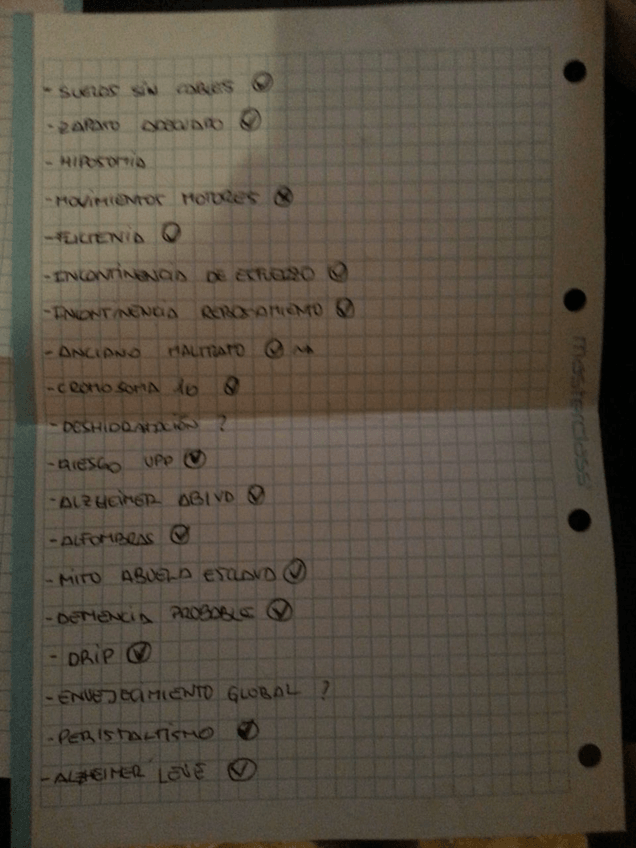 - SUELOS SIN CABLES ✓
- ZAPATO ADECUADO ✓
- HIPOSOMIA
- MOVIMIENTOS MOTORES
- INCONTINENCIA DE ESFUERZO ✓
- INCONTINENCIA REBOSAMIENTO ✓
- ANCIANO MALTRATO ✓
- CROMOSOMA 16
- DESHIDRATACIÓN ?
- RIESGO UPP ✓
- ALZHEIMER ABIVD ✓
- ALFOMBRAS ✓
- MITO ABUELA ESCLAVA ✓
- DEMENCIA PROBABLE ✓
- DRIP ✓
- ENVEJECIMIENTO GLOBAL ?
- PERISTALTISMO ✓
- ALZHEIMER LEVE ✓
masterclass